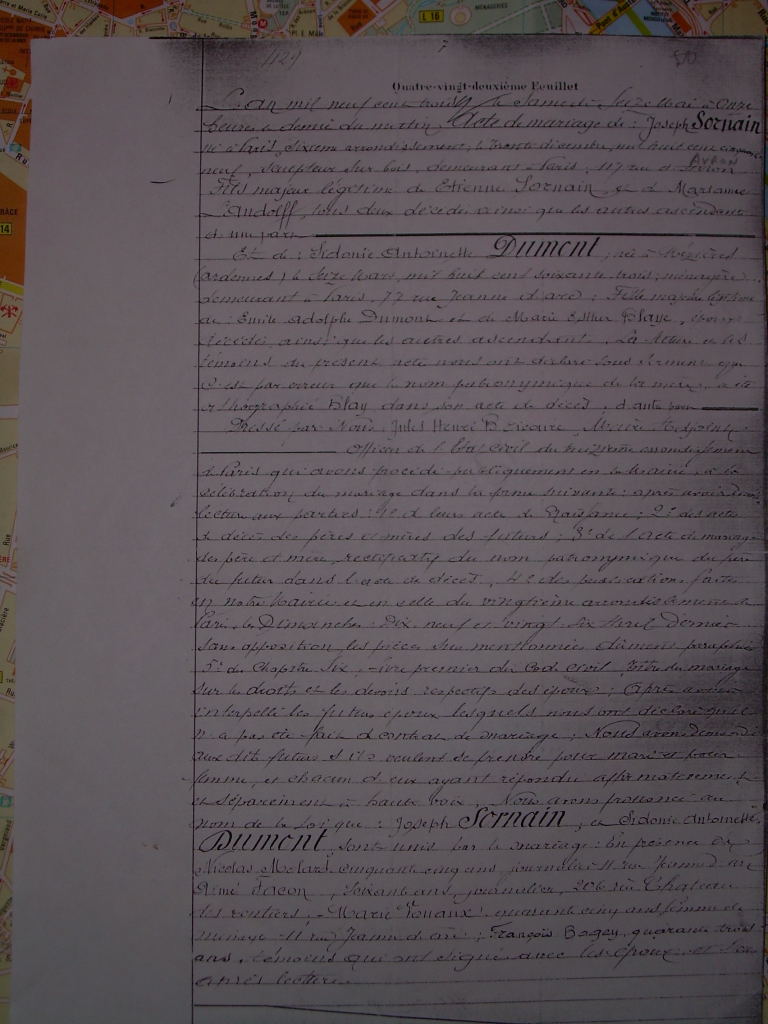 429
80
Quatre-vingt-deuxième Feuillet
L'an mil neuf cent trois, le Samedi Seize Mai à Onze
heures & demie du matin, Acte de mariage de : Joseph Sornain
né à Paris, sixième arrondissement, le trente décembre, mil huit cent cinquante
neuf, Sculpteur sur bois, demeurant à Paris, 117 rue d'Avron
Fils majeur légitime de Etienne Sornain & d Marianne
Landolff, tous deux décédés ainsi que les autres ascendants
d'une part
Et de : Sidonie Antoinette Dumont, née à Mézières
(Ardennes) le Seize Mars, mil huit cent soixante trois, ménagère
demeurant à Paris, 77 rue Jeanne d'arc ; Fille majeure légitime
de : Emile Adolphe Dumont et de Marie Esther Blaye, époux
décédés, ainsi que les autres ascendants. La future et les
témoins du présent acte nous ont déclaré sous serment que
c'est par erreur que le nom patronymique de la mère, a été
orthographié Blay dans son acte de décès, d'autre part
Dressé par Nous, Jules Henri, Maire Adjoint
Officier de l'Etat Civil du treizième arrondissement
d Paris qui avons procédé publiquement en la Mairie, à la
célébration du mariage dans la forme suivante : après avoir donné
lecture aux parties : 1° d leurs actes de Naissance ; 2° des actes
d décès des pères et mères des futurs ; 3° de l'acte de mariage
des père et mère, rectificatif du nom patronymique du père
du futur dans l'acte de décès, 4° des publications faites
en notre Mairie et en celle du vingtième arrondissement de
Paris, les Dimanches Dix neuf et vingt six Avril dernier
sans opposition, les pièces sus mentionnées dûment paraphées
5° du Chapitre Six, livre premier du Code Civil, Titre du mariage
sur les droits et les devoirs respectifs des époux ; Après avoir
interpellé les futurs époux lesquels nous ont déclaré qu'il
n'a pas été fait d contrat de mariage ; Nous avons demandé
aux dits futurs s'ils veulent se prendre pour mari et pour
femme, et chacun d'eux ayant répondu affirmativement
et séparément à haute voix ; Nous avons prononcé au
nom de la loi que : Joseph Sornain, et Sidonie Antoinette
Dumont, sont unis par le mariage : En présence de
Nicolas Molard, cinquante cinq ans, journalier 11 rue Jeanne d'arc
Aimé Facon, Soixante ans, journalier, 206 rue Château
des rentiers, Marie, quarante cinq ans, femme de
ménage 11 rue Jeanne d'arc ; François Bagey, quarante trois
ans, témoins qui ont signé avec les époux et Nous
après lecture